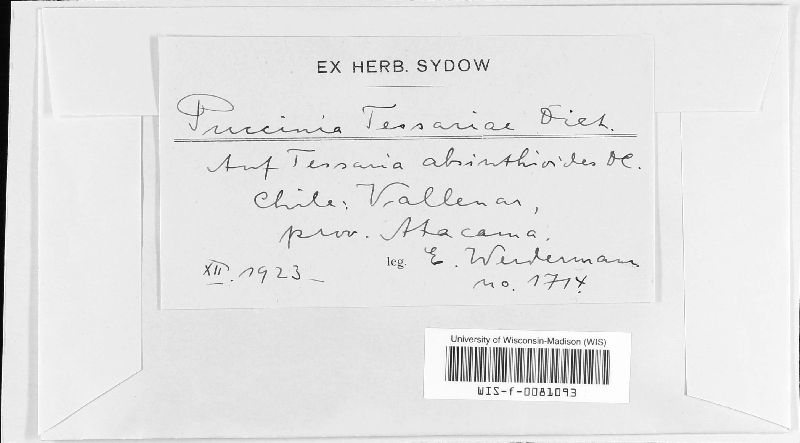 EX HERB. SYDOW
Puccinia Tessariae Diet.
Auf Tessaria absinthioides DC.
Chile: Vallenar,
prov. Atacama.
leg. E. Werdermann
XII. 1923 no. 1714.
University of Wisconsin-Madison (WIS)
WIS-f-0081093